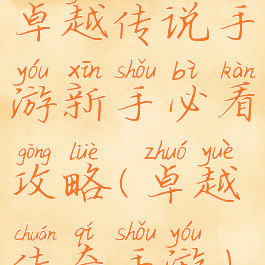 卓越传说手
yóu xīn shǒu bì kàn
游新手必看
gōng lüè zhuó yuè
攻略(卓越
chuán qí shǒu yóu
传奇手游)